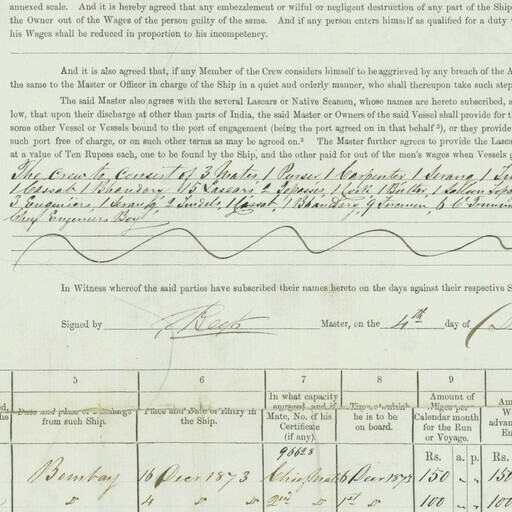 annexed scale. And it is hereby agreed that any embezzlement or wilful or negligent destruction of any part of the Ship
the Owner out of the Wages of the person guilty of the same. And if any person enters himself as qualified for a duty
his Wages shall be reduced in proportion to his incompetency.
And it is also agreed, that if any Member of the Crew considers himself to be aggrieved by any breach of the A
the same to the Master or Officer in charge of the Ship in a quiet and orderly manner, who shall thereupon take such step
The said Master also agrees with the several Lascars or Native Seamen, whose names are hereto subscribed, a
low, that upon their discharge at other than parts of India, the said Master or Owners of the said Vessel shall provide for t
some other Vessel or Vessels bound to the port of engagement (being the port agreed on in that behalf ²), or they provide
such port free of charge, or on such other terms as may be agreed on.³ The Master further agrees to provide the Lasca
at a value of Ten Rupees each, one to be found by the Ship, and the other paid for out of the men's wages when Vessels
The Crew to consist of 3 Mates, 1 Purser, 1 Carpenter 1 Serang, 1
1 Cassab 1 Bhandary 15 Lascars 2 1 Cook 1 Butler, 1
3 Engineers, 1 Serang 2 Tindels, 1 Cassab, 1 Bhandary, 9 Firemen, 6
Chief Engineers Boy
In Witness whereof the said parties have subscribed their names hereto on the days against their respective S
Signed by Master, on the 4th day of
5 6 7 8 9
Date and place of Discharge from such Ship. Place and Date of Entry in the Ship. In what capacity engaged and if Mate, No. of his Certificate (if any). Time at which he is to be on board. Amount of Wages per Calendar month for the Run or Voyage.
96628 Rs. a. p. Rs.
Bombay 16 Decr 1873 Chief Mate 6 Decr 1873 150 " " 150
" 4 " " 2nd " 1st " 100 " " 100